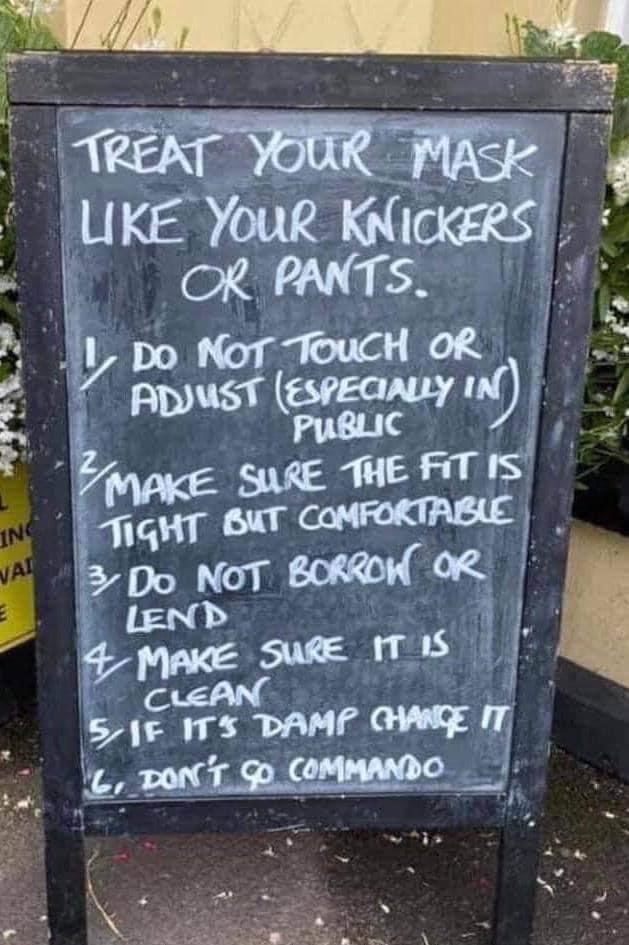 TREAT YOUR MASK
LIKE YOUR KNICKERS
OR PANTS.
1, DO NOT TOUCH OR
ADJUST (ESPECIALLY IN)
PUBLIC
2, MAKE SURE THE FIT IS
TIGHT BUT COMFORTABLE
3, DO NOT BORROW OR
LEND
4, MAKE SURE IT IS
CLEAN
5, IF IT'S DAMP CHANGE IT
6, DON'T GO COMMANDO